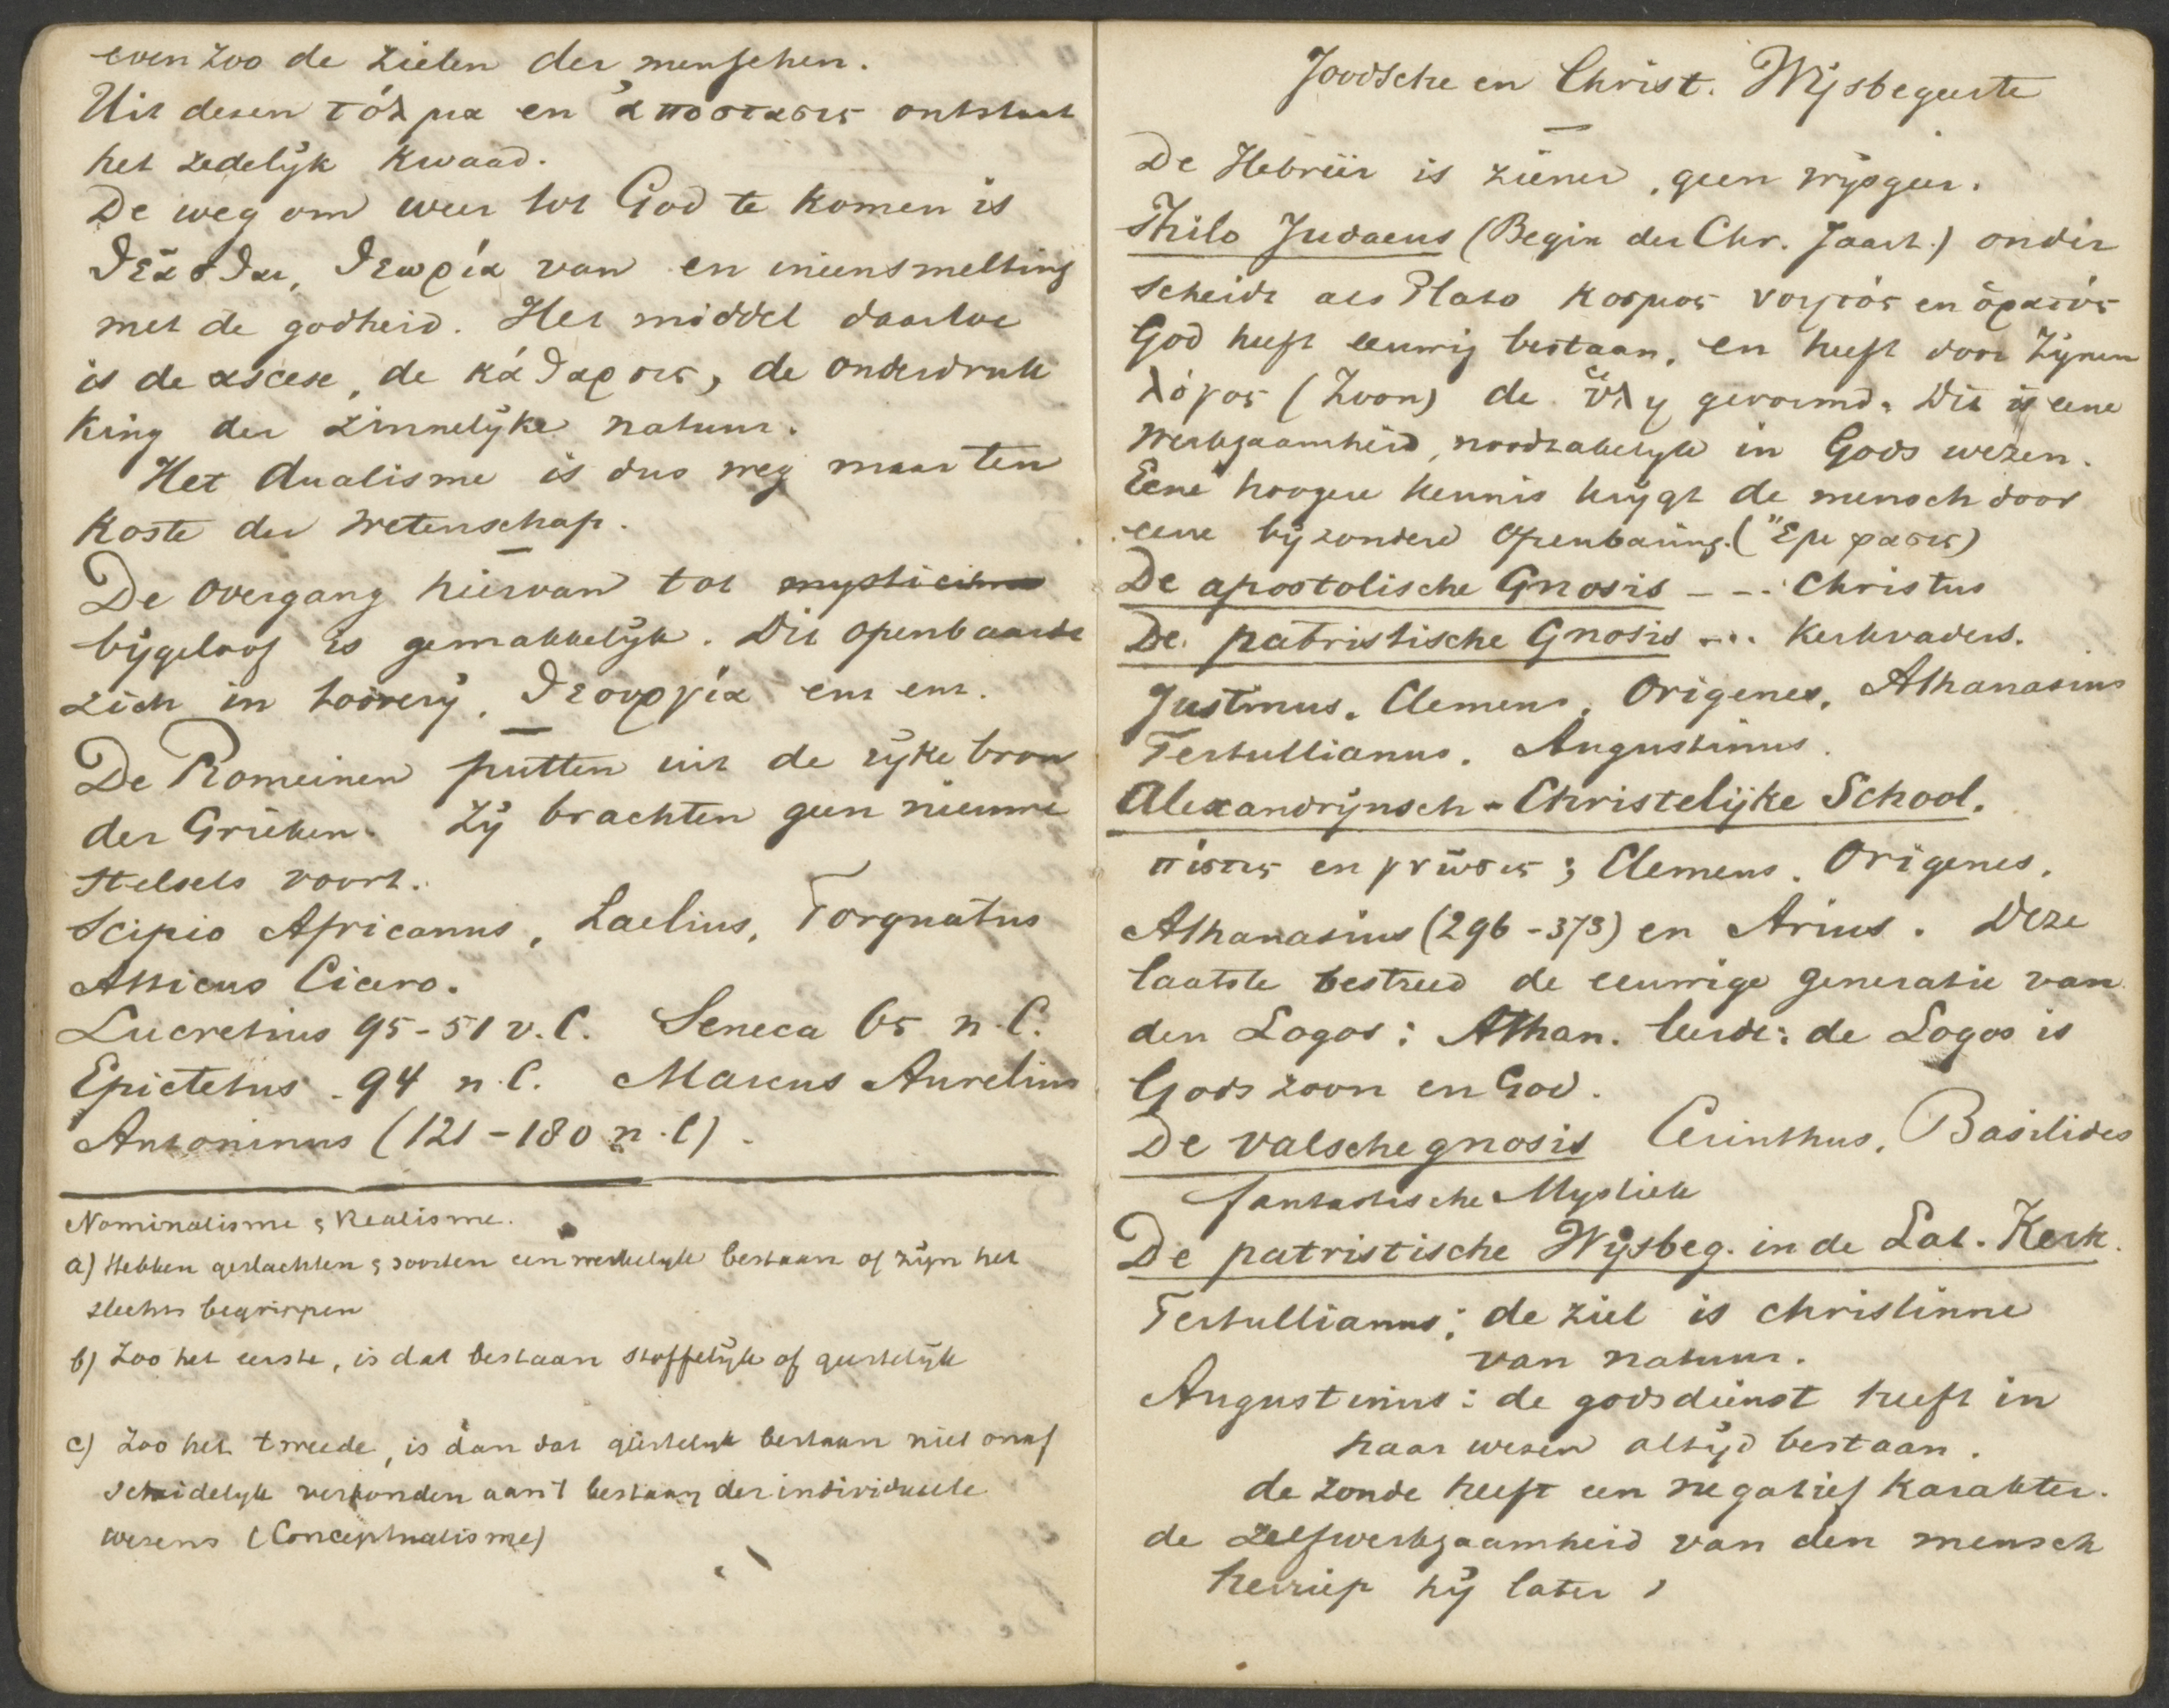 even zoo de zielen der menschen.
Uit dezen τόλμα en ἀποστασις ontstaat
het zedelijk kwaad.
De weg om weer tot God te komen is
θεᾶσθαι, θεωρία van en ineensmelting
met de godheid. Het middel daartoe
is de ascese, de κάθαρσις, de onderdruk
king der zinnelijke natuur.
Het dualisme is dus weg maar ten
koste der wetenschap.
De overgang hiervan tot mysticisme
bijgeloof is gemakkelijk. Dit openbaarde
zich in toovery, θεουργία enz enz.
De Romeinen putten uit de rijke bron
der Grieken. Zij brachten geen nieuwe
stelsels voort.
Scipio Africanus, Laelius, Torquatus
Atticus Cicero.
Lucretius 95-51 v. C. Seneca 65 n. C.
Epictetus - 94 n. C. Marcus Aurelius
Antoninus (121-180 n. C).
Nominalisme & Realisme.
a) Hebben geslachten & soorten een werkelijk bestaan of zijn het
slechts begrippen
b) Zoo het eerste, is dat bestaan stoffelijk of geestelijk
c) Zoo het tweede, is dan dat geestelijk bestaan niet onaf
scheidelijk verbonden aan 't bestaan der individueele
wezens (Conceptualisme)
Joodsche en Christ. Wijsbegeerte
De Hebreër is ziener, geen wijsgeer.
Philo Judaeus (Begin der Chr. Jaart.) onder
scheidt als Plato κοσμος νοητός en ὁρατός
God heeft eeuwig bestaan, en heeft door Zijnen
λόγος (Zoon) de ὕλη gevormd. Dit is eene
werkzaamheid, noodzakelijk in Gods wezen.
Eene hoogere kennis krijgt de mensch door
eene bijzondere openbaring. (Ἔμφασις)
De apostolische Gnosis - - . Christus
De patristische Gnosis ... Kerkvaders.
Justinus, Clemens, Origenes, Athanasius
Tertullianus, Augustinus.
Alexandrijnsch - Christelijke School.
πίστις en γνῶσις; Clemens, Origenes,
Athanasius (296-373) en Arius. Deze
laatste bestreed de eeuwige generatie van
den Logos: Athan. leerde: de Logos is
Gods zoon en God.
De valsche gnosis Cerinthus, Basilides
fantastische Mystiek
De patristische Wijsbeg. in de Lat. Kerk.
Tertullianus: de ziel is christinne
van natuur.
Augustinus: de godsdienst heeft in
haar wezen altijd bestaan.
de zonde heeft een negatief karakter.
de zelfwerkzaamheid van den mensch
herriep hij later,